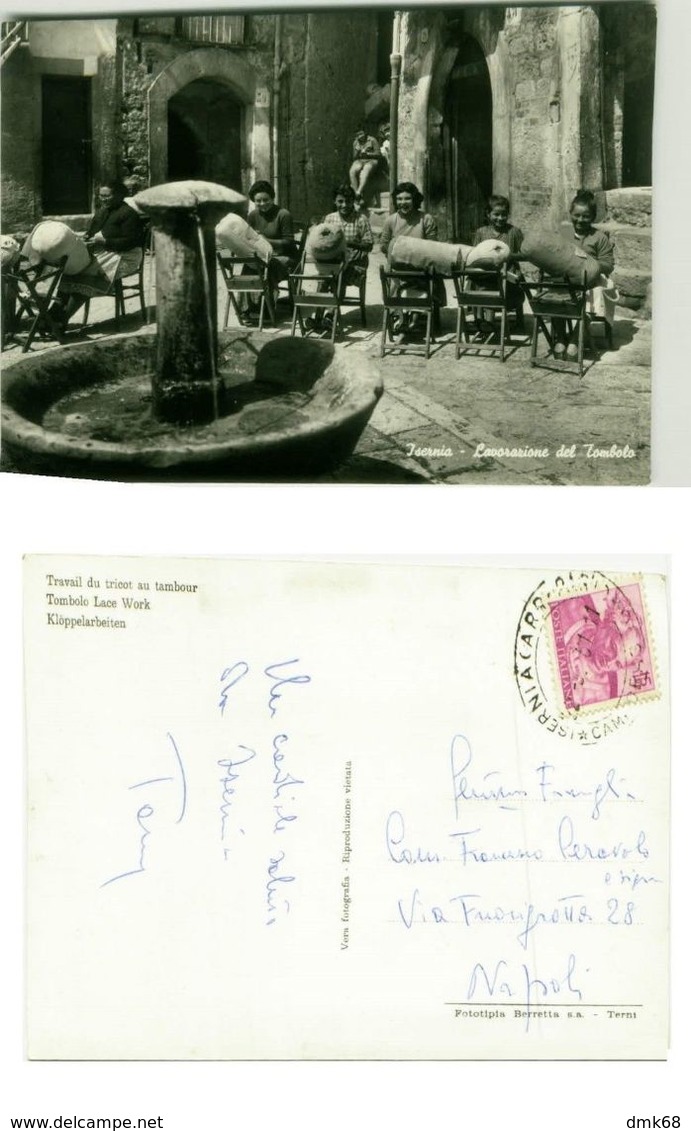 Isernia - Lavorazione del Tombolo
Travail du tricot au tambour
Tombolo Lace Work
Klöppelarbeiten
Un cordiale saluto
da Isernia
Tony
Vera fotografia - Riproduzione vietata
ISERNIA (CARR
CAM
POSTE ITALIANE
Com. Francesco
Via Fuorigrotta 28
Napoli
Fototipia Berretta s.a. - Terni
delcampe.net
dmk68